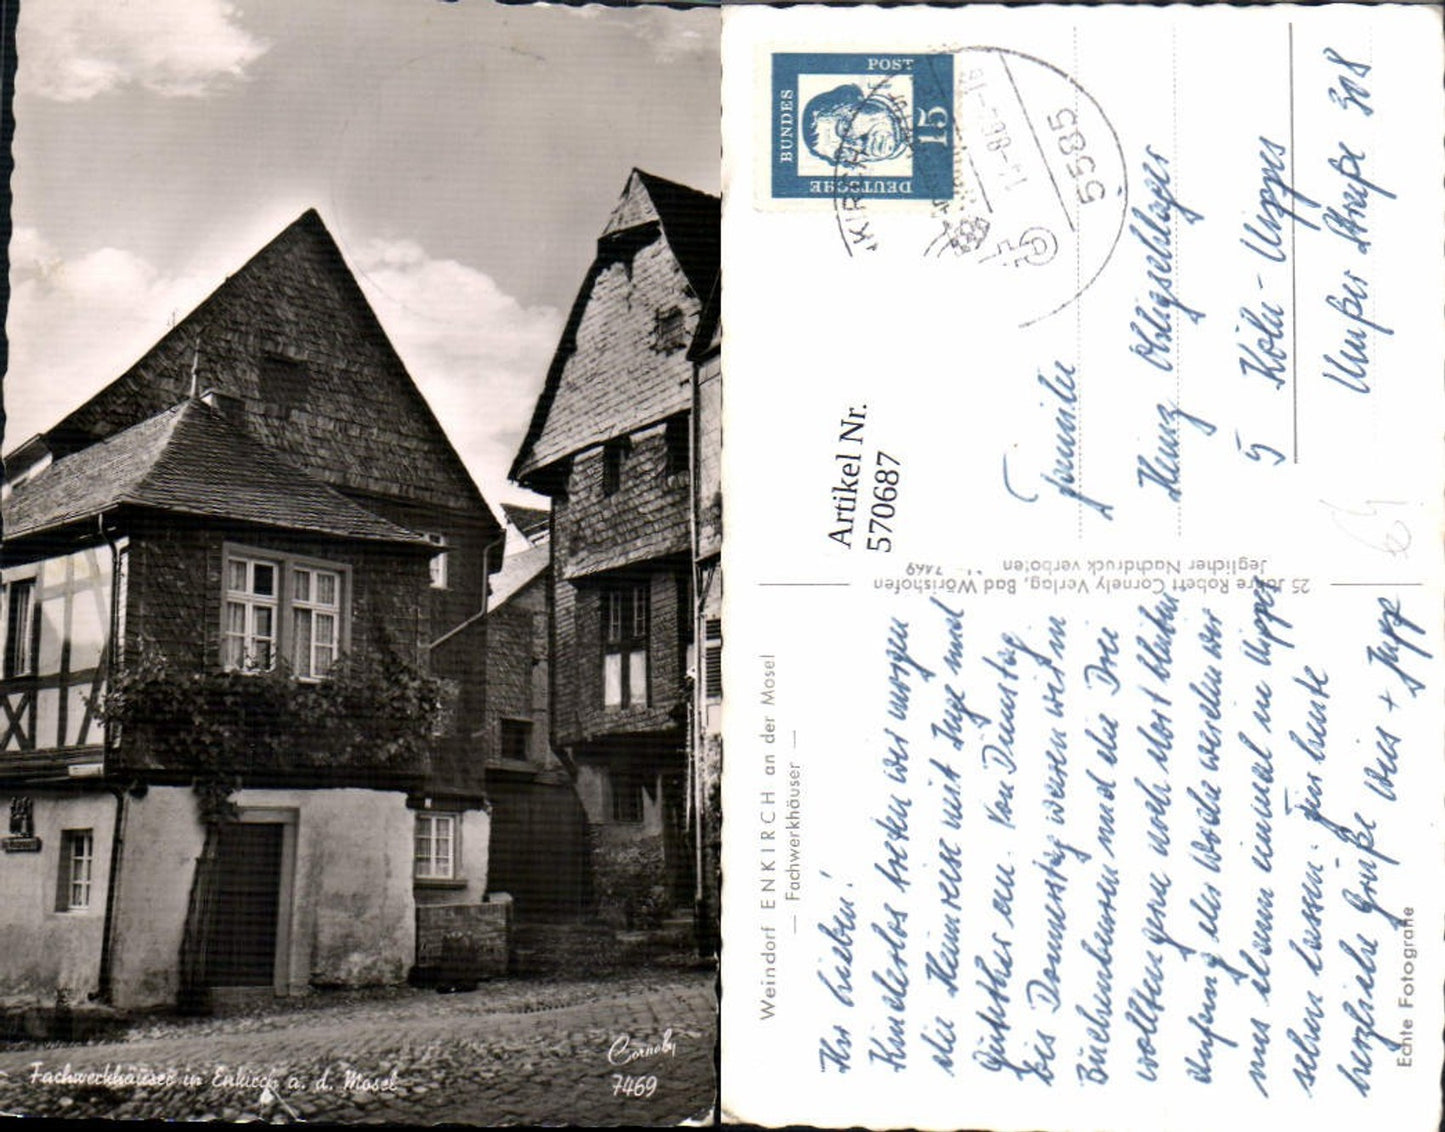 Fachwerkhäuser in Enkirch a. d. Mosel
Cornely
7469
DEUTSCHE
BUNDES
POST
15
5585
Artikel Nr.
570687
Weindorf ENKIRCH an der Mosel
— Fachwerkhäuser —
25 Jahre Robert Cornely Verlag, Bad Wörishofen
Jeglicher Nachdruck verboten
7469
Echte Fotografie
Ihr Lieben!
Kinderlos treten wir morgen
die Heimreise mit Inge und
Günther an. Von Dienstag
bis Donnerstag waren wir in
und die Drei
wollten gerne noch dort bleiben
Anfang der Woche werden wir
uns dann einmal in Nippes
sehen lassen. Für heute
herzliche Grüße Weis + Jupp
Familie
Heinz
5 Köln-Nippes
Neußer Straße 308